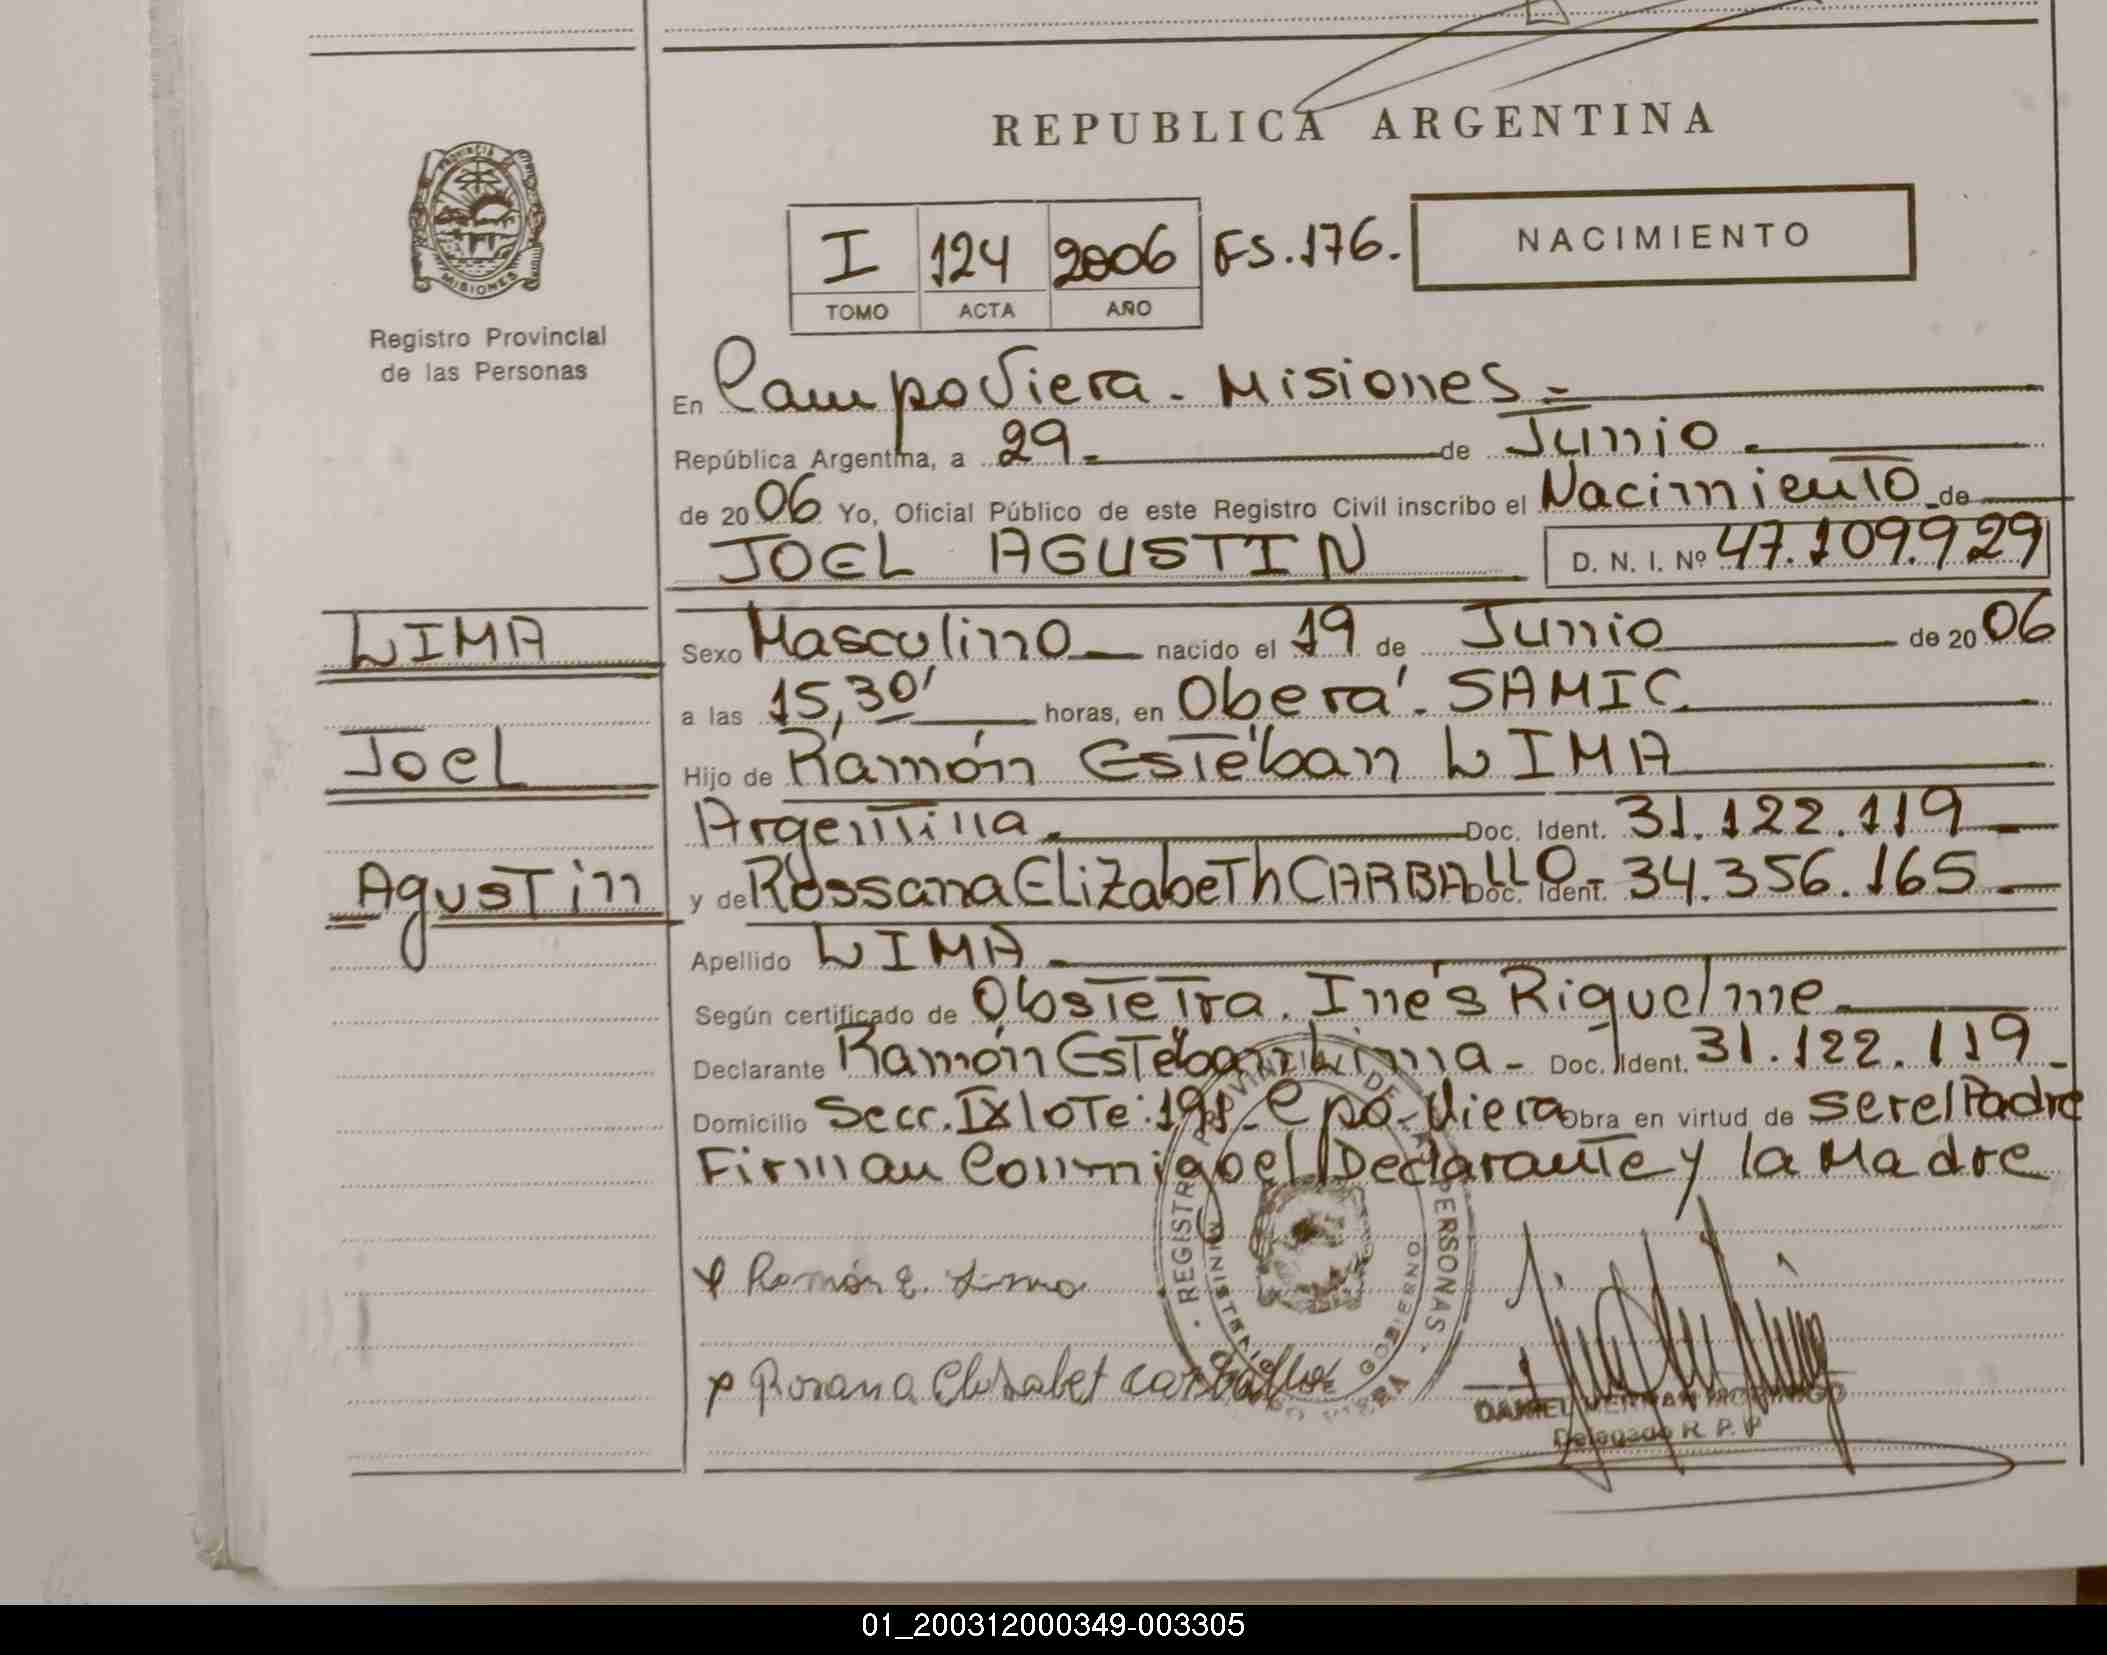 REPUBLICA ARGENTINA
PROVINCIA
MISIONES
Registro Provincial
de las Personas
I 124 2006 FS.176.
TOMO ACTA AÑO
NACIMIENTO
En Campo Viera - Misiones.-
República Argentina, a 29.- de Junio.-
de 2006 Yo, Oficial Público de este Registro Civil inscribo el Nacimiento de
JOEL AGUSTIN D. N. I. Nº 47.109.929
LIMA
Sexo Masculino nacido el 19 de Junio de 2006
a las 15,30' horas, en Oberá. SAMIC.
Joel
Hijo de Ramón Esteban LIMA
Argentina. Doc. Ident. 31.122.119
Agustin
y de Rossana Elizabeth CARBALLO- Doc. Ident. 34.356.165
Apellido LIMA
Según certificado de Obstetra. Inés Riquelme
Declarante Ramón Esteban Lima- Doc. Ident. 31.122.119-
Domicilio Secc. IX lote: 198- Cpo. Viera Obra en virtud de ser el Padre
Firman Conmigo el Declarante y la Madre
Ramón E. Lima
Rosana Elisabet Carballo
REGISTRO PROVINCIAL DE LAS PERSONAS
MINISTERIO GOBIERNO
DANIEL
Delegado R. P. P
01_200312000349-003305